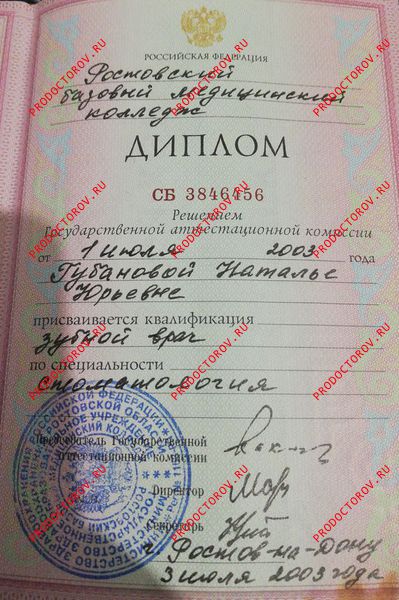 РОССИЙСКАЯ ФЕДЕРАЦИЯ
Ростовский
базовый медицинский
колледж
ДИПЛОМ
СБ 3846456
Решением
Государственной аттестационной комиссии
от 1 июля 2003 года
Губановой Наталье
Юрьевне
присваивается квалификация
зубной врач
по специальности
стоматология
Председатель Государственной
аттестационной комиссии
Директор
Секретарь
г. Ростов-на-Дону
3 июля 2003 года
PRODOCTOROV.RU